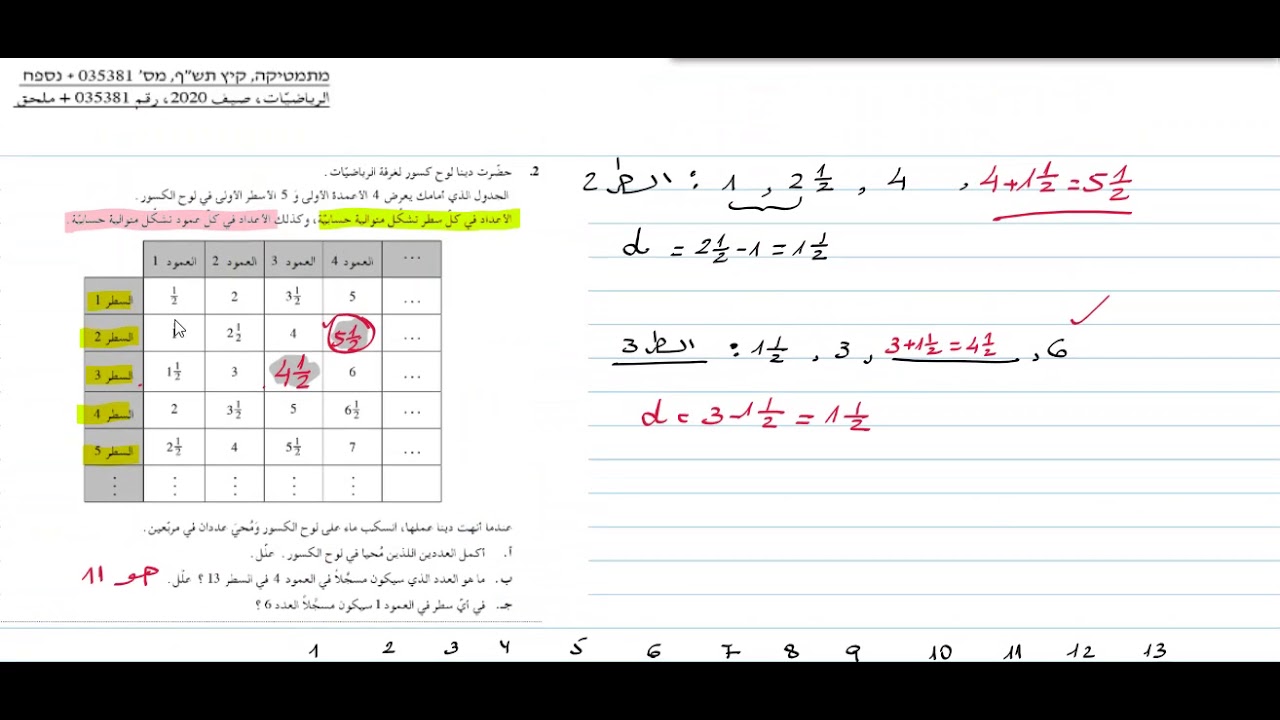 מתמטיקה, קיץ תש"ף, מס' 035381 + נספח
الرياضيّات، صيف 2020، رقم 035381 + ملحق
2. حضّرت دينا لوح كسور لغرفة الرياضيّات.
الجدول الذي أمامك يعرض 4 الأعمدة الأولى و 5 الأسطر الأولى في لوح الكسور.
الأعداد في كلّ سطر تشكّل متوالية حسابيّة، وكذلك الأعداد في كلّ عمود تشكّل متوالية حسابيّة
العمود 1 العمود 2 العمود 3 العمود 4 ...
السطر 1 ½ 2 3½ 5 ...
السطر 2 1 2½ 4 5½ ...
السطر 3 1½ 3 4½ 6 ...
السطر 4 2 3½ 5 6½ ...
السطر 5 2½ 4 5½ 7 ...
⋮ ⋮ ⋮ ⋮ ⋮
عندما أنهت دينا عملها، انسكب ماء على لوح الكسور وَمُحيَ عددان في مربّعين.
أ. أكمل العددين اللذين مُحيا في لوح الكسور. علّل.
ب. ما هو العدد الذي سيكون مسجَّلاً في العمود 4 في السطر 13؟ علّل. هو 11
جـ. في أيّ سطر في العمود 1 سيكون مسجَّلاً العدد 6؟
السطر 2 : 1 , 2½ , 4 , 4+1½=5½
d = 2½-1 = 1½
السطر 3 : 1½ , 3 , 3+1½=4½ , 6
d = 3-1½ = 1½
1 2 3 4 5 6 7 8 9 10 11 12 13